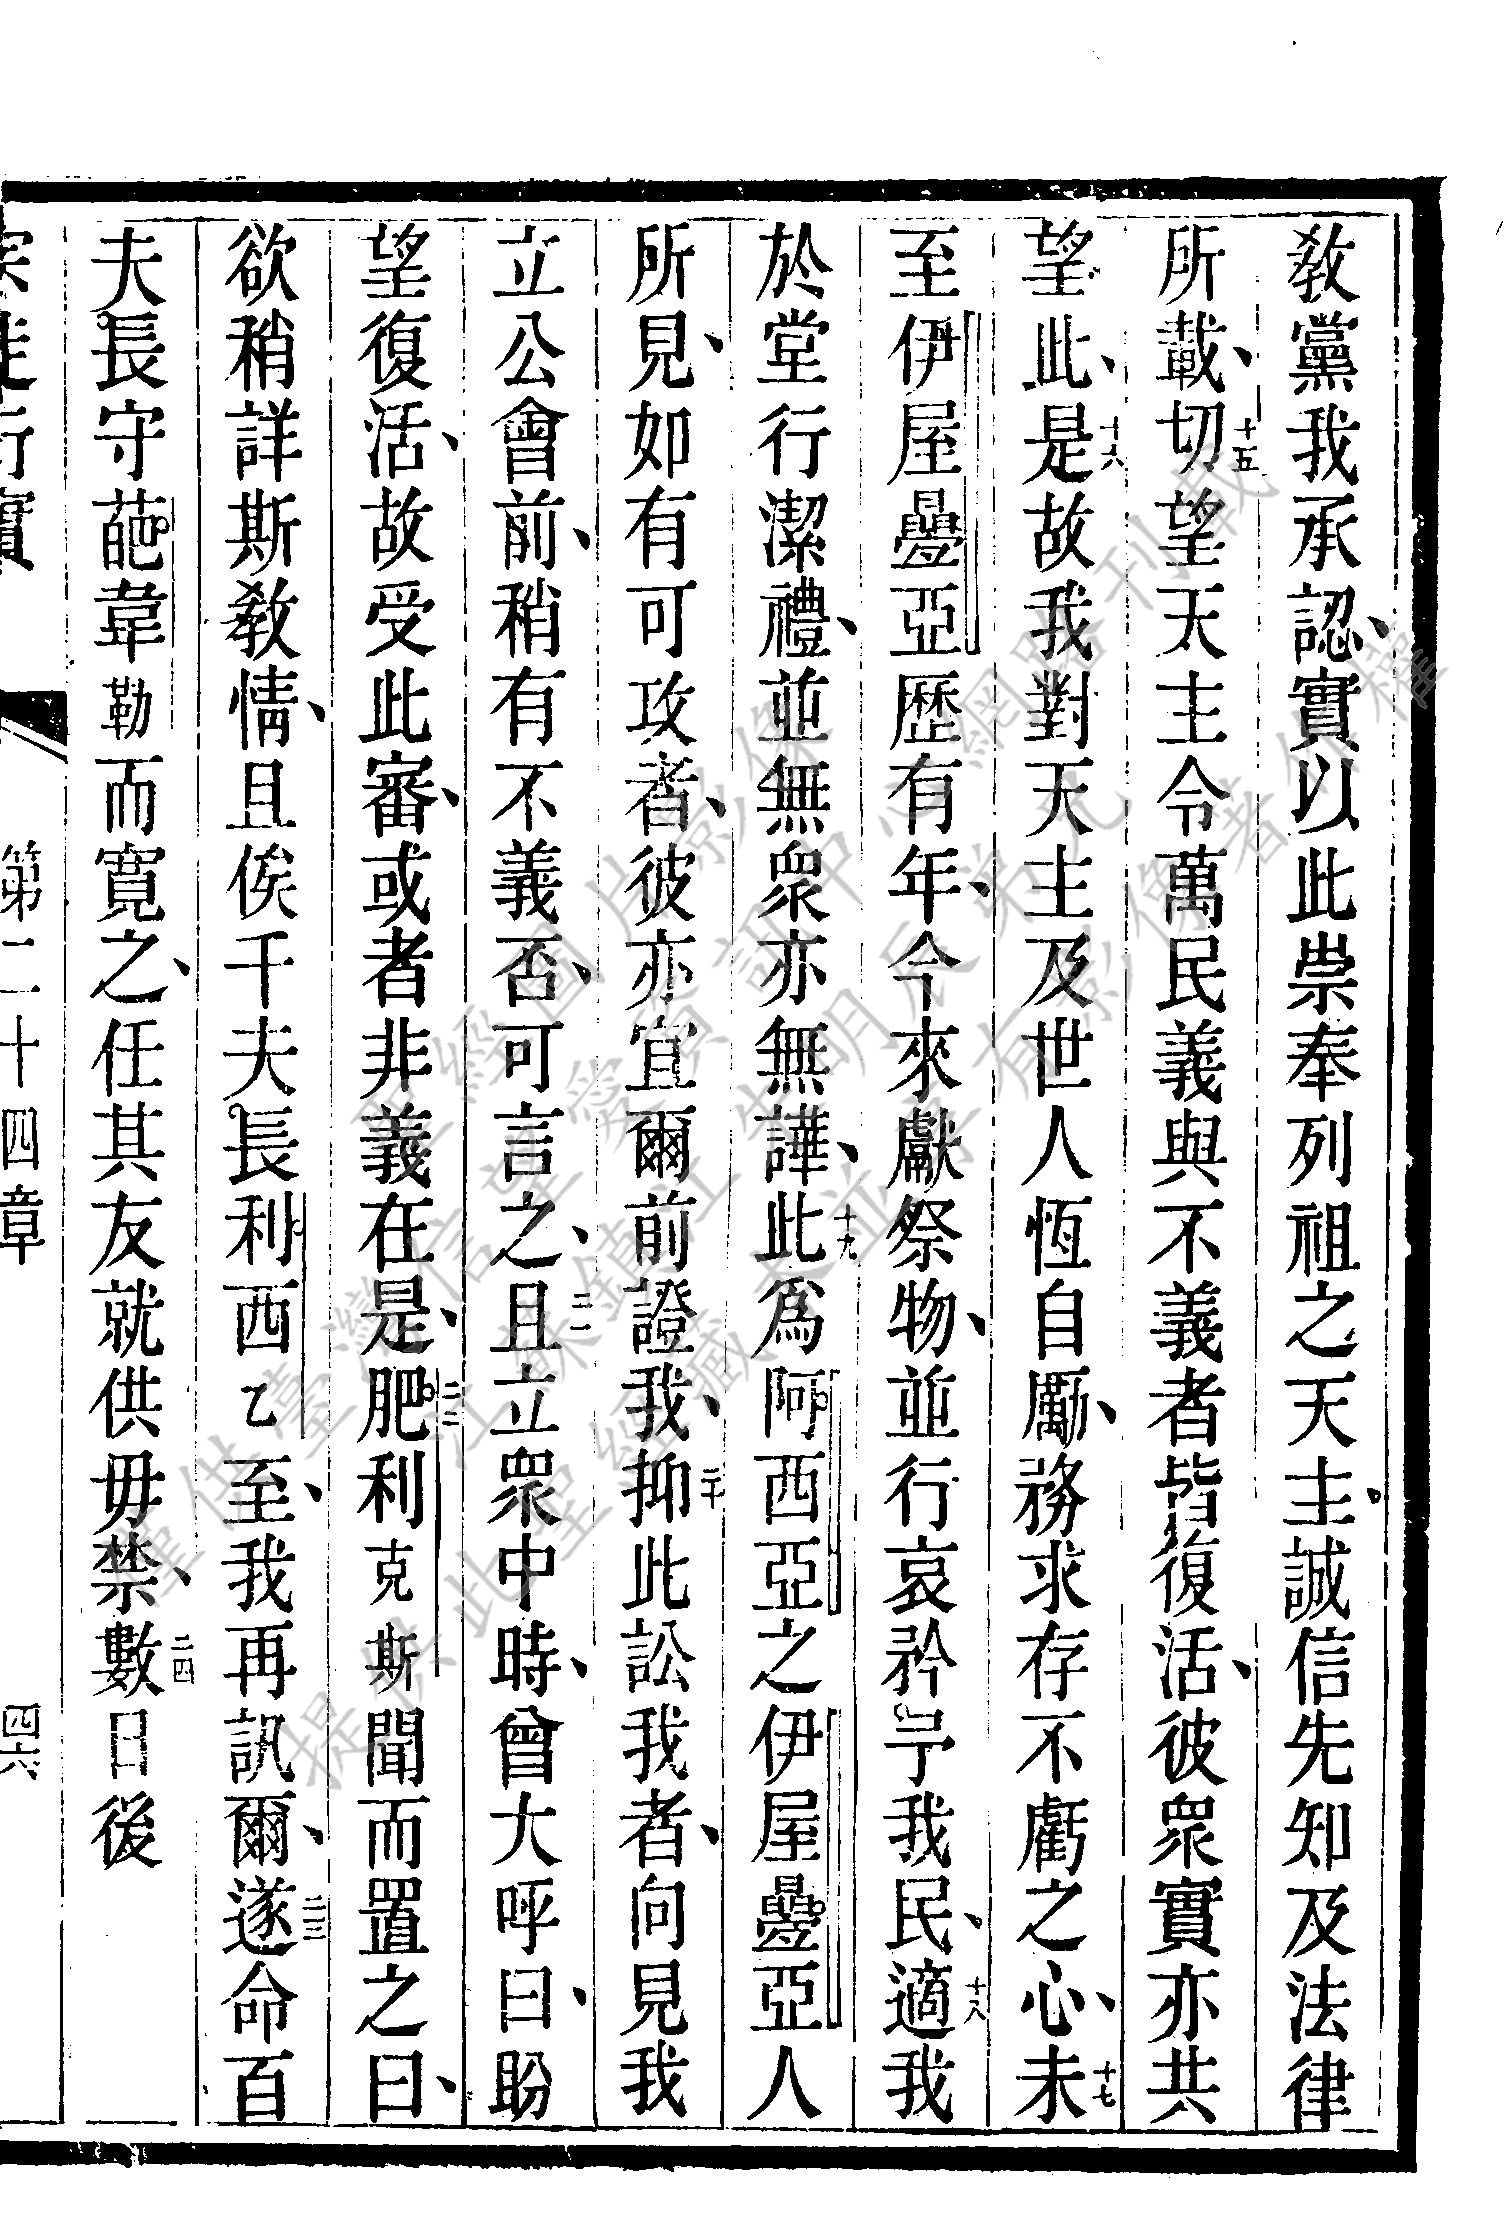 教黨我承認、實以此祟奉列祖之天主、誠信先知及法律
所載、十五切望天主令萬民義與不義者皆復活、彼眾實亦共
望此、十六是故我對天主及世人恆自勵、務求存不虧之心、十七未
至伊屋疉亞歷有年、今來獻祭物、並行哀矜于我民、十八適我
於堂行潔禮、並無眾亦無譁、十九此爲阿西亞之伊屋疉亞人
所見、如有可攻者、彼亦宜爾前證我、二十抑此訟我者、向見我
立公會前、稍有不義否、可言之、二一且立眾中時、曾大呼曰、盼
望復活、故受此審、或者非義在是、二二肥利克斯聞而置之曰、
欲稍詳斯教情、且俟千夫長利西乙至、我再訊爾、二三遂命百
夫長守葩韋勒而寬之、任其友就供毋禁、二四數日後
宗徒行實 第二十四章 四六